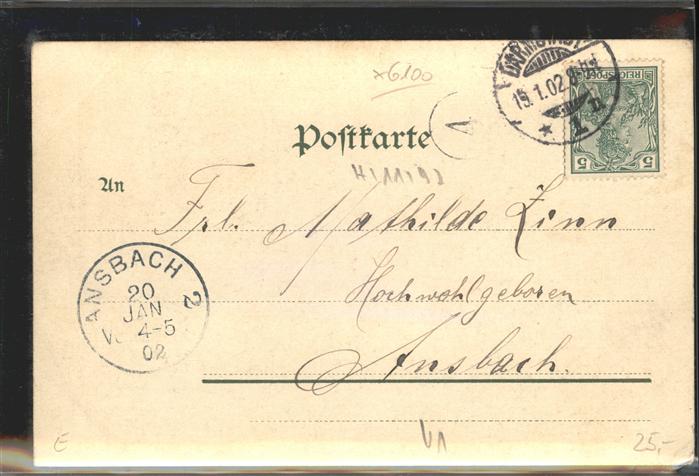 x6100
DARMSTADT
19.1.02.
* 1 n
REICHSPOST
5 5
Postkarte
A
An
Frl. Mathilde Zinn
Hochwohlgeboren
Ansbach.
ANSBACH 2
20
JAN
4-5
02
E
25,-